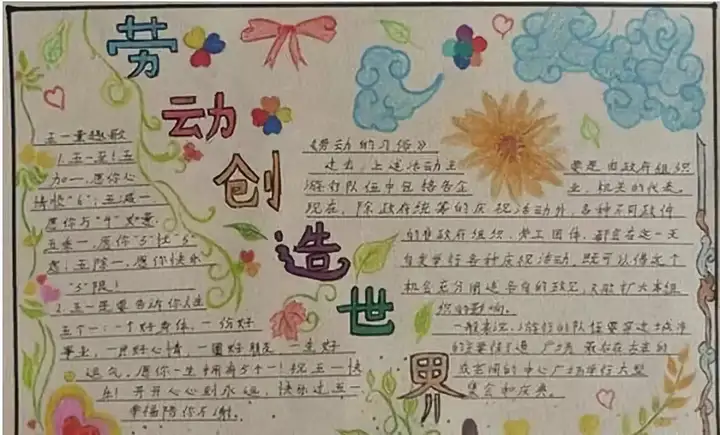 劳动创造世界
五一童趣歌
1.五一至！五
加一，愿你心
情快"6"；五减一
愿你与"4"如意.
五乘一，愿你"5"忧"5"
虑；五除一，愿你快乐
"5"限！
2.五一是要告诉你人生
五个一：一个好身体，一份好
事业，一片好心情，一圈好朋友，一生好
运气，愿你一生拥有5个一！祝五一快
乐！开开心心到永远，快乐过五一
幸福陪你与谢.
《劳动的习俗》
过去，上述活动主要是由政府组织
游行队伍中包括各企业、机关的代表。
现在，除政府统筹的庆祝活动外，各种不同政件
的非政府组织、劳工团体，都会在这一天
自发举行各种庆祝活动，既可以借这个
机会充分阐述各自的政见，又能扩大本组
织的影响。
一般来说，游行的队伍要穿过城市
的主要街道、广场，最后在古老的
或老间的中心广场举行大型
集会和庆典。